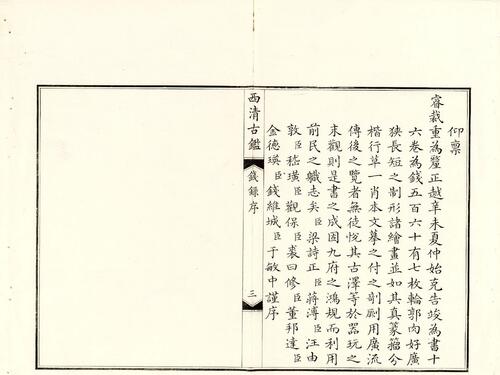 仰禀
睿裁重為釐正越辛未夏仲始克告竣為書十
六卷為錢五百六十有七枚輪郭肉好廣
狹長短之制形諸繪畫並如其真篆籀分
楷行草一肖本文摹之付之剞劂用廣流
傳後之覽者無徒悅其古澤等於器玩之
末觀則是書之成固九府之鴻規而利用
前民之軌志矣臣梁詩正臣蔣溥臣汪由
敦臣嵇璜臣觀保臣裘曰修臣董邦達臣
金德瑛臣錢維城臣于敏中謹序
西清古鑑
錢錄序
三